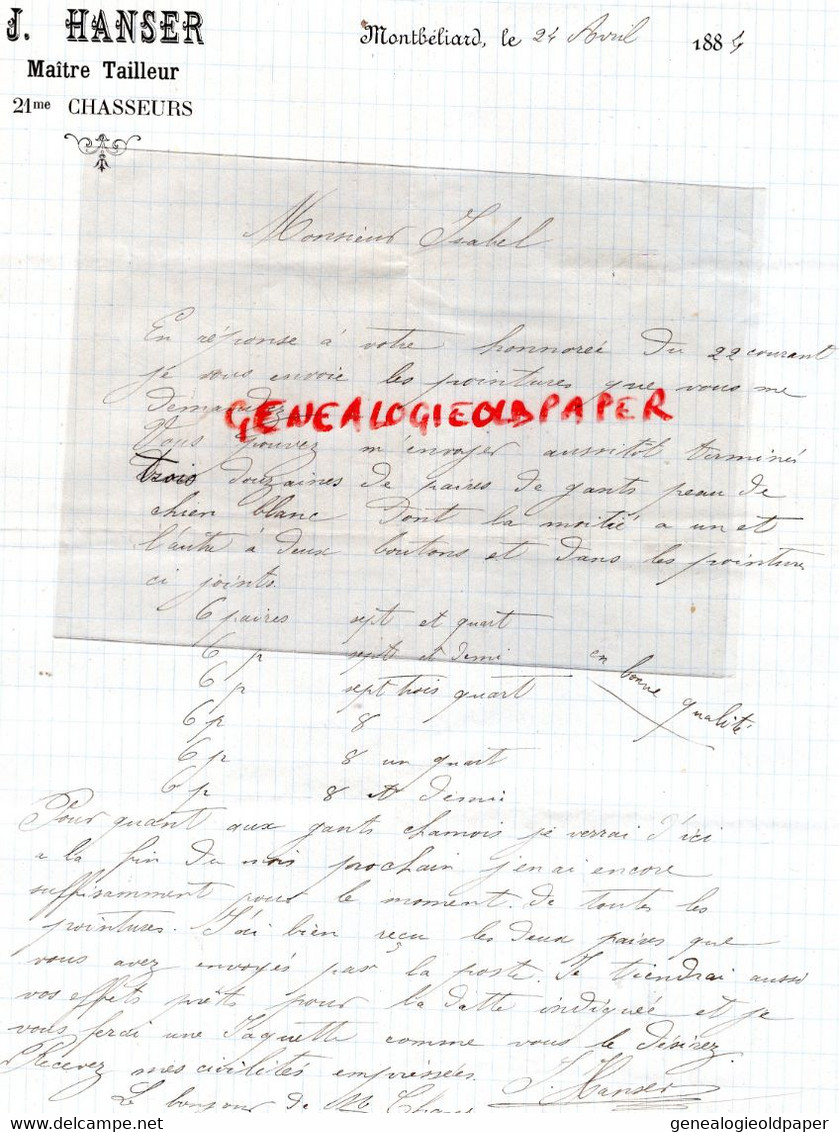 J. HANSER
Maître Tailleur
21me CHASSEURS
Montbéliard, le 24 Avril 1884
Monsieur Isabel
En réponse à votre honnoreé du 22 courant
je vous envoie les pointures que vous me
demandez
GENEALOGIEOLDPAPER
Vous pouvez m'envoyer aussitôt terminés
trois douzaines de paires de gants peau de
chien blanc dont la moitié a un et
l'autre à deux boutons et dans les pointures
ci joints
6 paires sept et quart
6 p sept et demi
6 p sept trois quart
en bonne qualité
6 p 8
6 p 8 un quart
6 p 8 et demi
Pour quant aux gants chamois je verrai d'ici
a la fin du mois prochain j'en ai encore
suffisamment pour le moment de toutes les
pointures. J'ai bien reçu les deux paires que
vous avez envoyés par la poste. Je tiendrai aussi
vos effets prêts pour la datte indiquée et je
vous ferai une Jaquette comme vous le désirez.
Recevez mes civilités empressées.
J. Hanser
Le bonjour de Mr
genealogieoldpaper
genealogieoldpaper